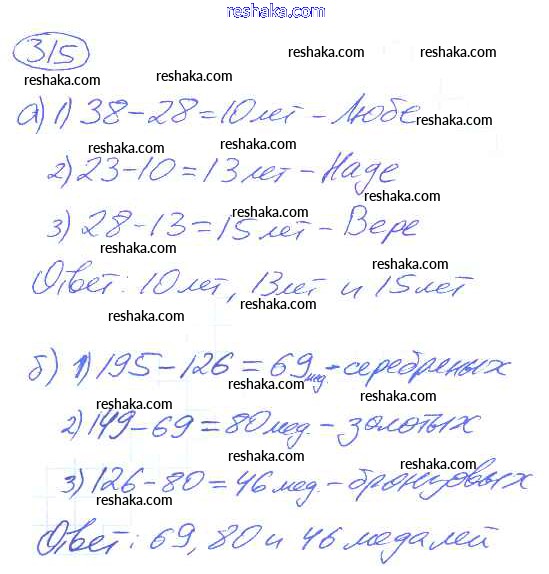 reshaka.com
315
reshaka.com reshaka.com reshaka.com
а) 1) 38-28=10 лет - Любе
reshaka.com
reshaka.com
2) 23-10=13 лет - Наде
reshaka.com
reshaka.com
3) 28-13=15 лет - Вере
reshaka.com
reshaka.com
Ответ: 10 лет, 13 лет и 15 лет
reshaka.com
reshaka.com
б) 1) 195-126=69 мед. - серебреных
reshaka.com
reshaka.com
2) 149-69=80 мед. - золотых
reshaka.com
reshaka.com
3) 126-80=46 мед. - бронзовых
reshaka.com
reshaka.com
Ответ: 69, 80 и 46 медалей
reshaka.com